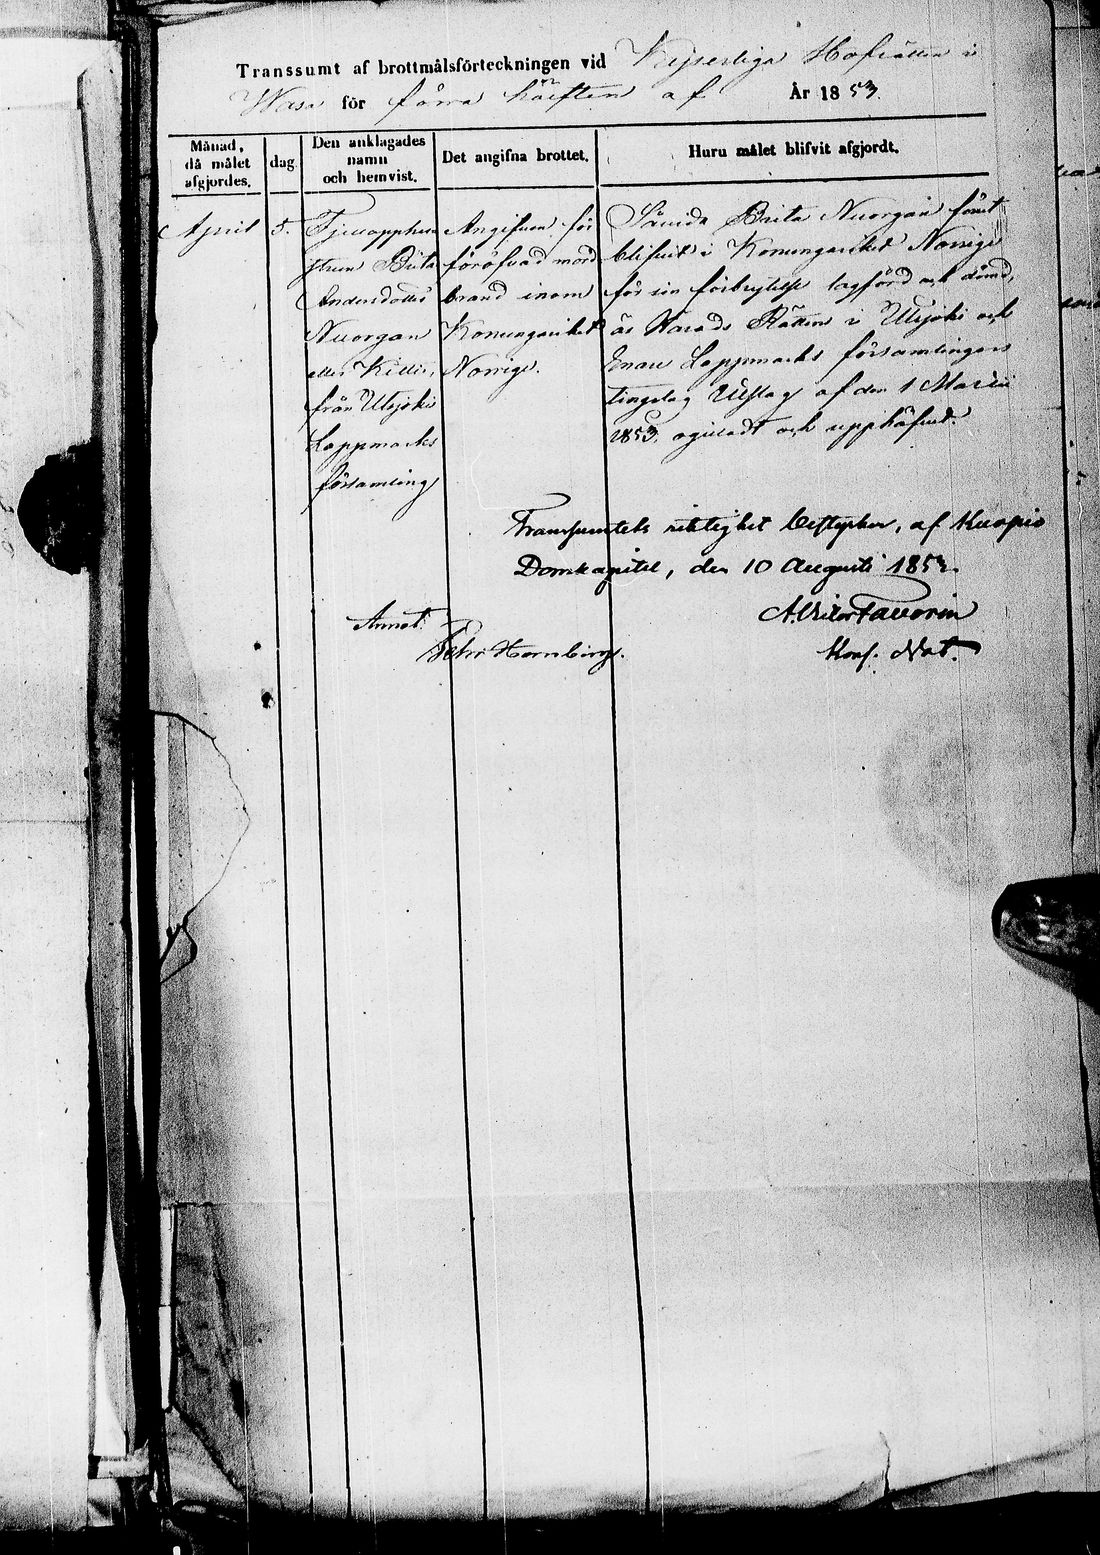 Transsumt af brottmålsförteckningen vid Kejserliga Hofrätten i
Wasa för förra hälften af År 1853.
Månad,
då målet
afgjordes.
dag
Den anklagades
namn
och hemvist.
Det angifna brottet.
Huru målet blifvit afgjordt.
April
5.
Brita
Andersdotter
Nuorgan
eller Kitti,
från Utsjoki
Lappmarks
församling
Angifven för
föröfvad mord
brand inom
Konungariket
Norrige.
Sedan Brita Nuorgan förut
blifvit i Konungariket Norrige
för sin förbrytelse lagförd och dömd,
är Härads Rättens i Utsjoki och
Enare Lappmarks församlingars
tingslag Utslag af den 1 Martii
1853, ogilladt och upphäfvet.
Transsumtets riktighet bestyrker, af Kuopio
Domkapitel, den 10 Augusti 1853.
A. Favorin
Kons. Not.
Annot.
Pehr Hornborg.